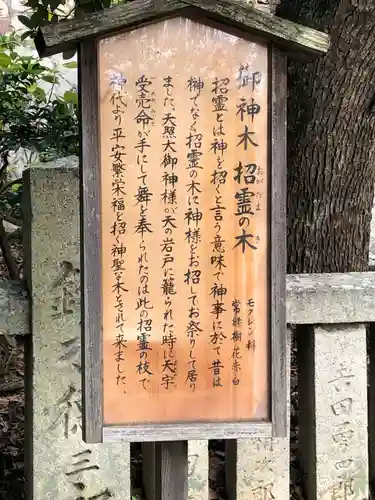 御神木 招霊の木
おがたま
き
モクレン科
常緑樹花赤白
招霊とは神を招くと言う意味で神事に於て昔は
榊でなく招霊の木に神様をお招してお祭りして居り
ました、天照大御神様が天の岩戸に籠られた時に天宇
受売命が手にして舞を奉られたのは此の招霊の枝で
神代より平安繁栄福を招く神聖な木とされて来ました。
吉田勇四郎